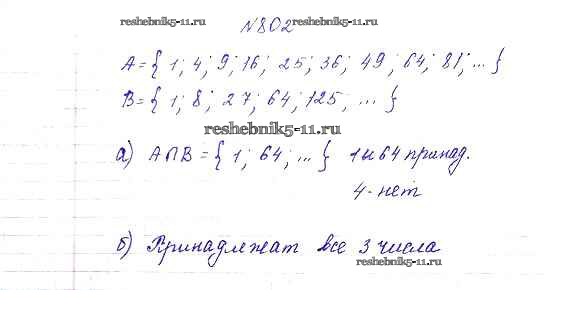 reshebnik5-11.ru
N802
A={1; 4; 9; 16; 25; 36; 49; 64; 81; ...}
B={1; 8; 27; 64; 125, ...}
reshebnik5-11.ru
а) A∩B={1; 64; ...} 1 и 64 принад.
4-нет
б) Принадлежат все 3 числа
reshebnik5-11.ru